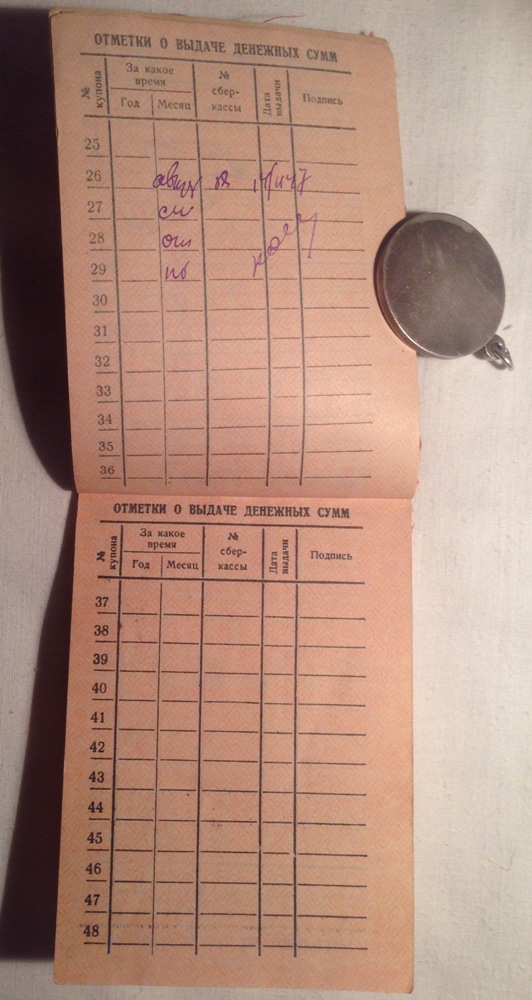 ОТМЕТКИ О ВЫДАЧЕ ДЕНЕЖНЫХ СУММ
№ купона
За какое время
Год
Месяц
№ сбер-кассы
Дата выдачи
Подпись
25
26 август
27
28
29
30
31
32
33
34
35
36
ОТМЕТКИ О ВЫДАЧЕ ДЕНЕЖНЫХ СУММ
№ купона
За какое время
Год
Месяц
№ сбер-кассы
Дата выдачи
Подпись
37
38
39
40
41
42
43
44
45
46
47
48